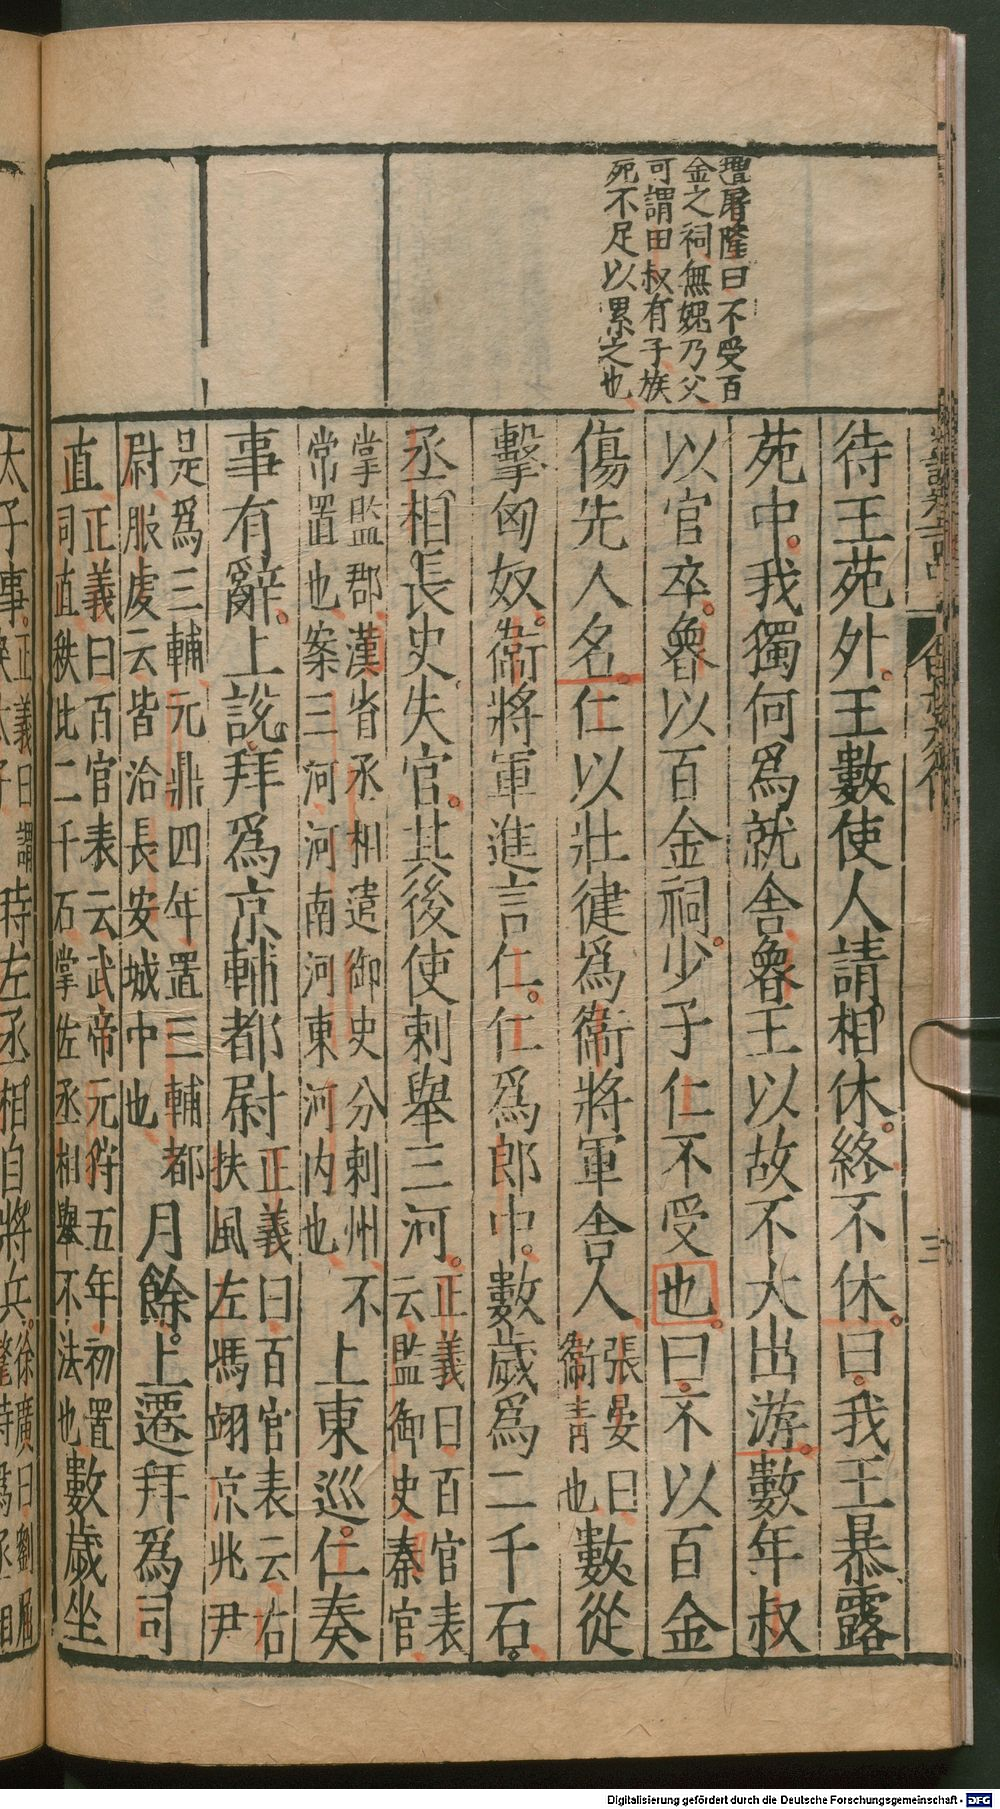 屠隆曰不受百
金之祠無媿乃父
可謂田叔有子族
死不足以累之也
待王苑外。王數使人請相休。終不休。曰。我王暴露
苑中。我獨何爲就舍。魯王以故不大出游。數年叔
以官卒。魯以百金祠。少子仁不受也。曰。不以百金
傷先人名。仁以壯健爲衛將軍舍人
張晏曰
衛青也
數從
擊匈奴。衛將軍進言仁。仁爲郎中。數歲爲二千石。
丞相長史失官。其後使刺舉三河。
正義曰百官表
云監御史秦官
掌監郡漢省丞相遣御史分刺州不
常置也案三河河南河東河内也
上東巡。仁奏
事有辭。上說拜爲京輔都尉
正義曰百官表云右
扶風左馮翊京兆尹
是爲三輔元鼎四年置三輔都
尉服虔云皆治長安城中也
月餘。上遷拜爲司
直
正義曰百官表云武帝元狩五年初置
司直秩比二千石掌佐丞相舉不法也
數歲坐
太子事。
正義曰謂
時左丞相自將兵。
徐廣曰劉屈
三
Digitalisierung gefördert durch die Deutsche Forschungsgemeinschaft - DFG